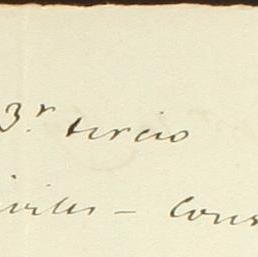 3.r tercio
iviles – Cons